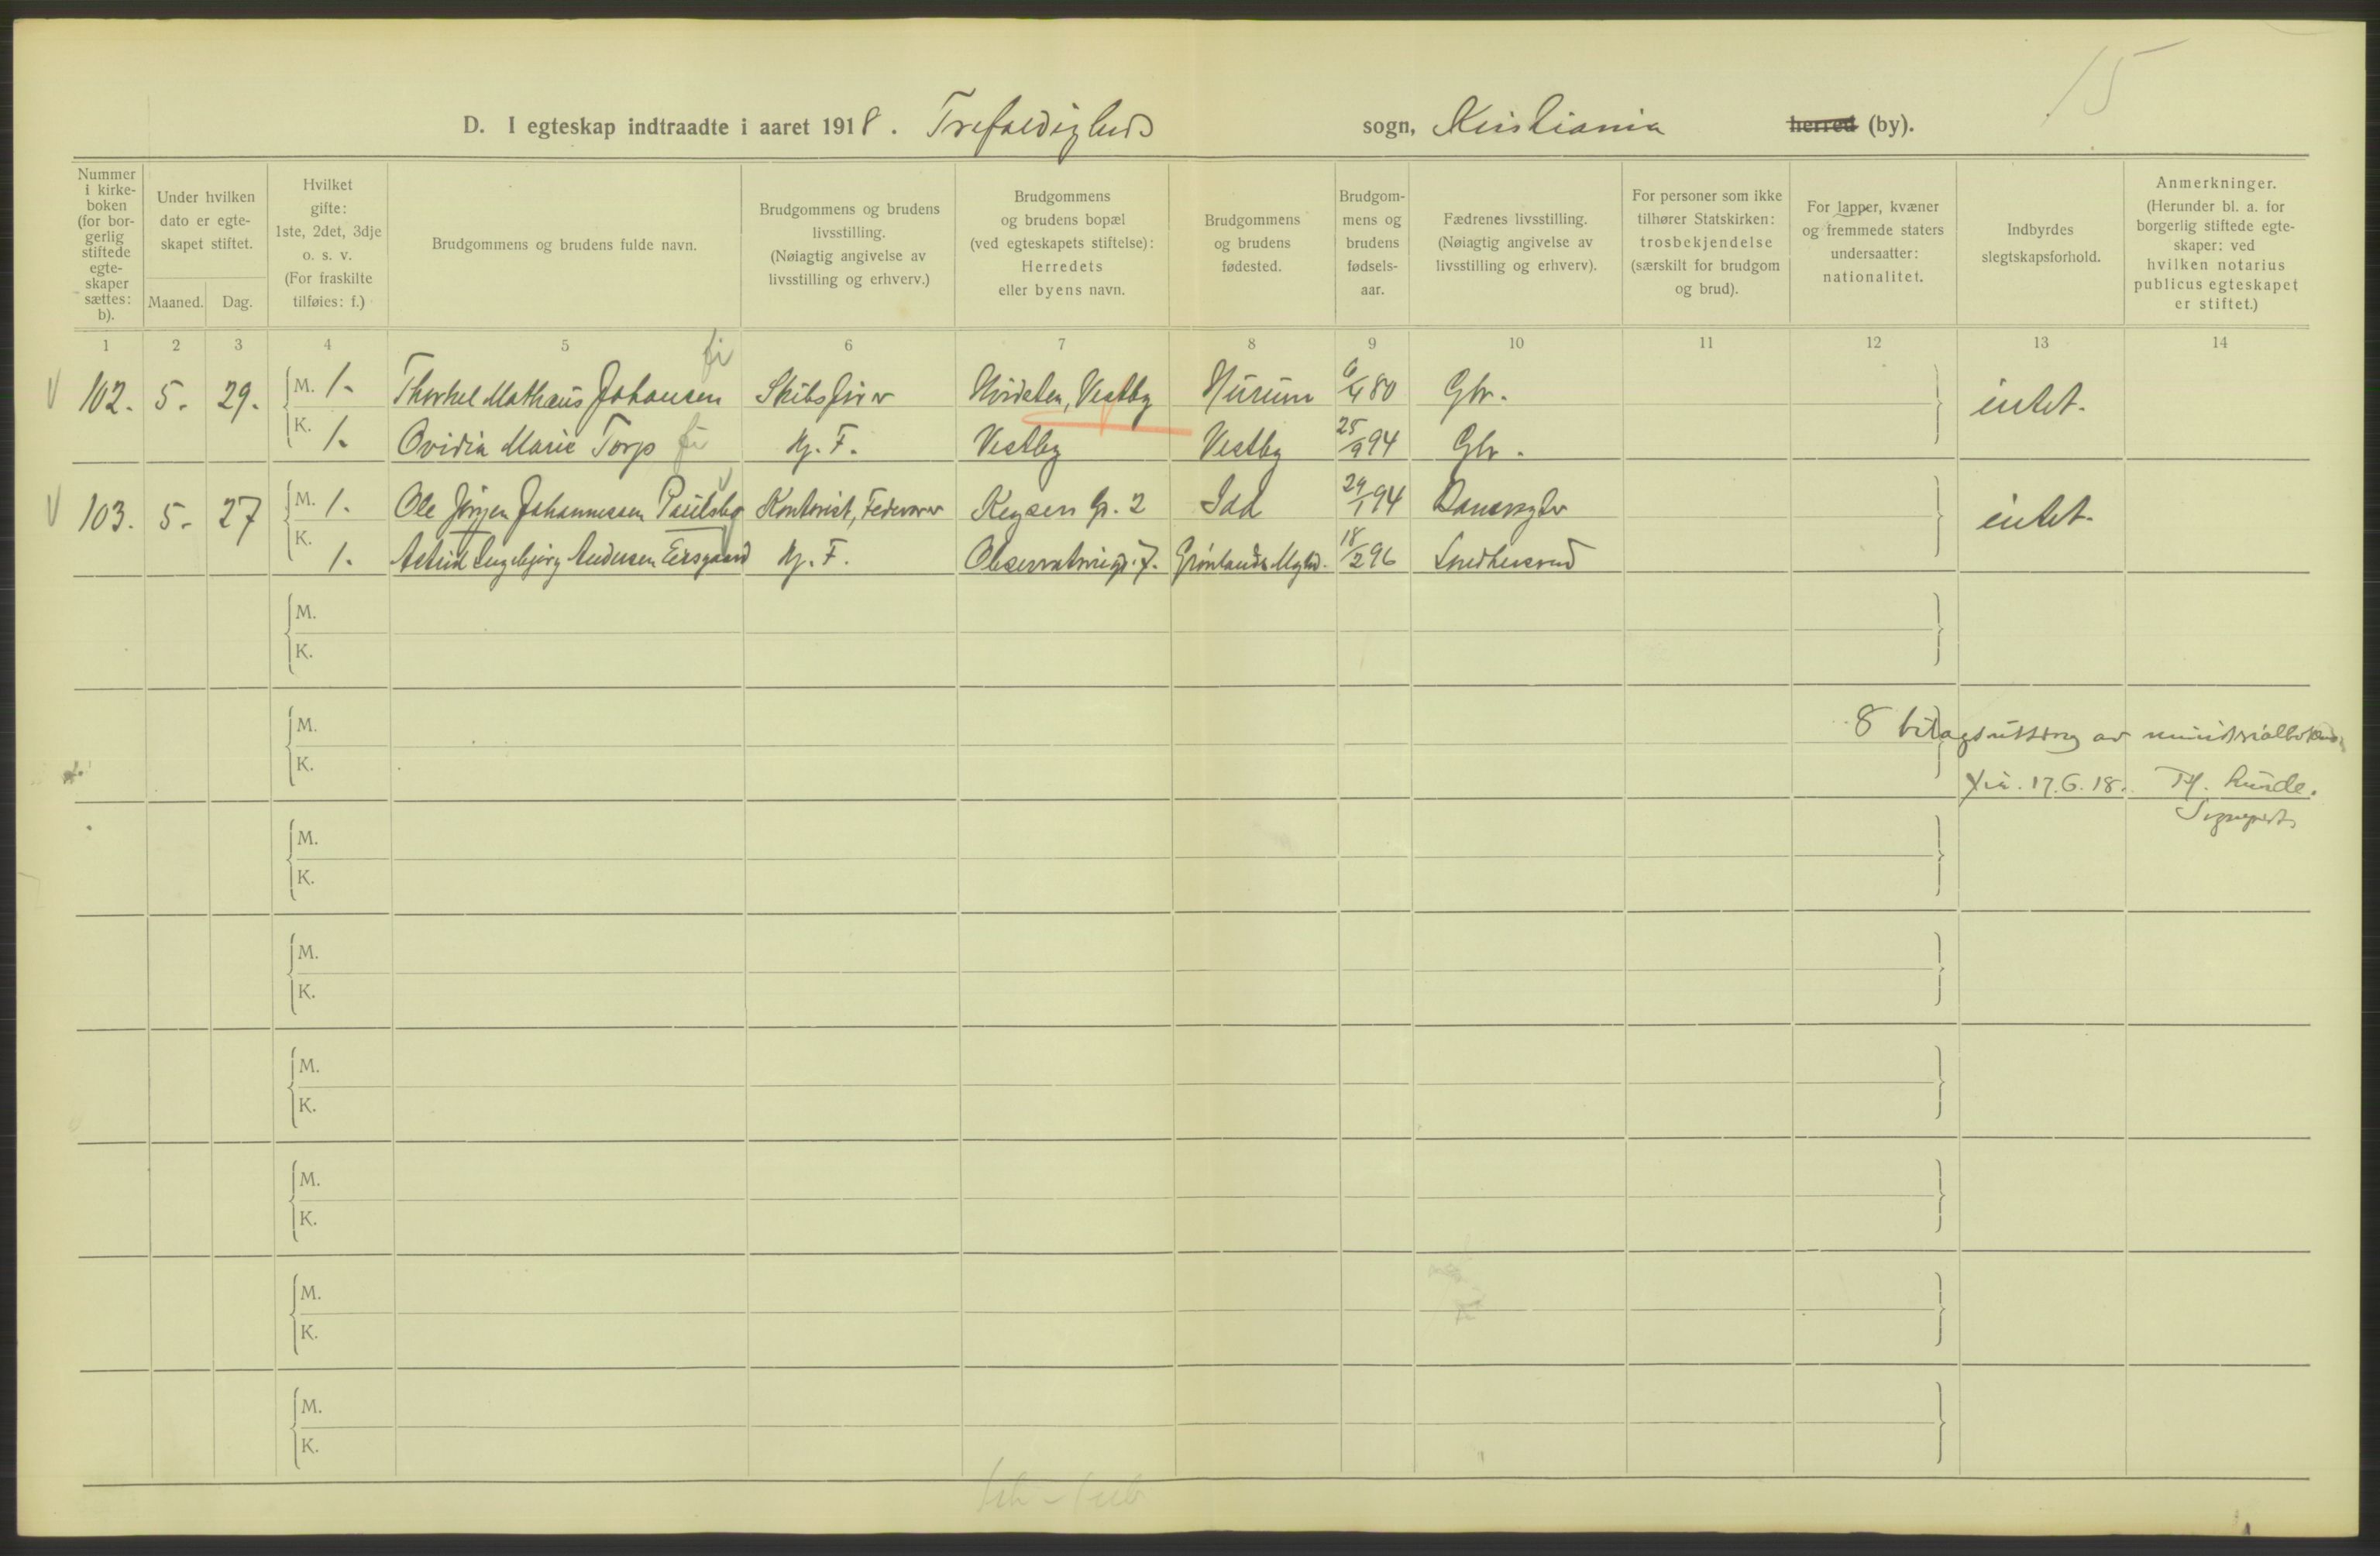 15
D. I egteskap indtraadte i aaret 1918. Trefoldigheds sogn, Kristiania herred (by).
Nummer i kirke- boken (for bor- gerlig stiftede egte- skaper sættes: b).
Under hvilken dato er egte- skapet stiftet.
Maaned. Dag.
Hvilket gifte: 1ste, 2det, 3dje o. s. v. (For fraskilte tilføies: f.)
Brudgommens og brudens fulde navn.
Brudgommens og brudens livsstilling. (Nøiagtig angivelse av livsstilling og erhverv.)
Brudgommens og brudens bopæl (ved egteskapets stiftelse): Herredets eller byens navn.
Brudgommens og brudens fødested.
Brudgom- mens og brudens fødsels- aar.
Fædrenes livsstilling. (Nøiagtig angivelse av livsstilling og erhverv).
For personer som ikke tilhører Statskirken: trosbekjendelse (særskilt for brudgom og brud).
For lapper, kvæner og fremmede staters undersaatter: nationalitet.
Indbyrdes slegtskapsforhold.
Anmerkninger. (Herunder bl. a. for borgerlig stiftede egte- skaper: ved hvilken notarius publicus egteskapet er stiftet.)
1 2 3 4 5 6 7 8 9 10 11 12 13 14
102. 5. 29. M. 1. Thorkel Mathæus Johansen Skibsfører Hvidsten, Vestby Hurum 6/4 80 Gbr. intet.
K. 1. Ovidia Marie Torp Hj. F. Vestby Vestby 25/9 94 Gbr.
103. 5. 27 M. 1. Ole Jörgen Johannessen Paulsbo Kontorist, Keysers G. 2 Idd 29/1 94 intet.
K. 1. Astrid Ingebjörg Andersen Hj. F. Observatorieg. 7. 18/2 96
M.
K.
M. 8 av
K. 17.6.18. Sogneprest
M.
K.
M.
K.
M.
K.
M.
K.
M.
K.
M.
K.